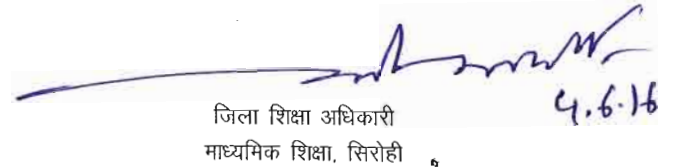 4.6.16
जिला शिक्षा अधिकारी
माध्यमिक शिक्षा, सिरोही